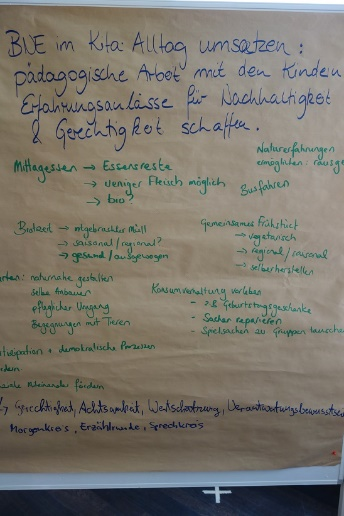 BNE im Kita-Alltag umsetzen:
pädagogische Arbeit mit den Kindern
Erfahrungsanlässe für Nachhaltigkeit
& Gerechtigkeit schaffen.
Naturerfahrungen
ermöglichen: rausge
Mittagessen → Essensreste
→ weniger Fleisch möglich
→ bio?
Busfahren
Brotzeit → mitgebrachter Müll
→ saisonal/regional?
→ gesund/ausgewogen
Gemeinsames Frühstück
→ vegetarisch
→ regional/saisonal
→ selberherstellen
arten: naturnahe gestalten
selbst anbauen
pfleglicher Umgang
Begegnungen mit Tieren
Konsumverhaltung vorleben
- z.B. Geburtstagsgeschenke
- Sachen reparieren
- Spielsachen zw Gruppen tauschen
tizipation + demokratische Prozesse
rdern
Miteinander fördern
→ Gerechtigkeit, Achtsamkeit, Wertschätzung, Verantwortungsbewusstsein
Morgenkreis, Erzählrunde, Sprechkreis